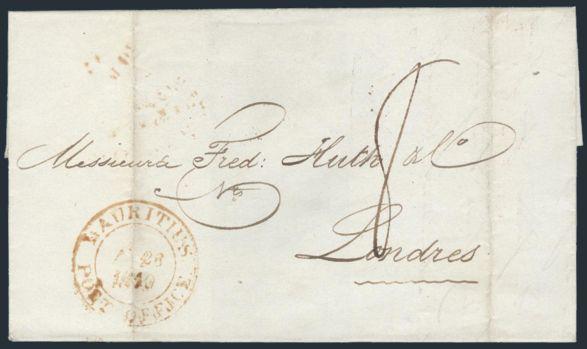 Messieurs Fred: Huth & Co
8
Londres
MAURITIUS
28
1840
POST OFFICE